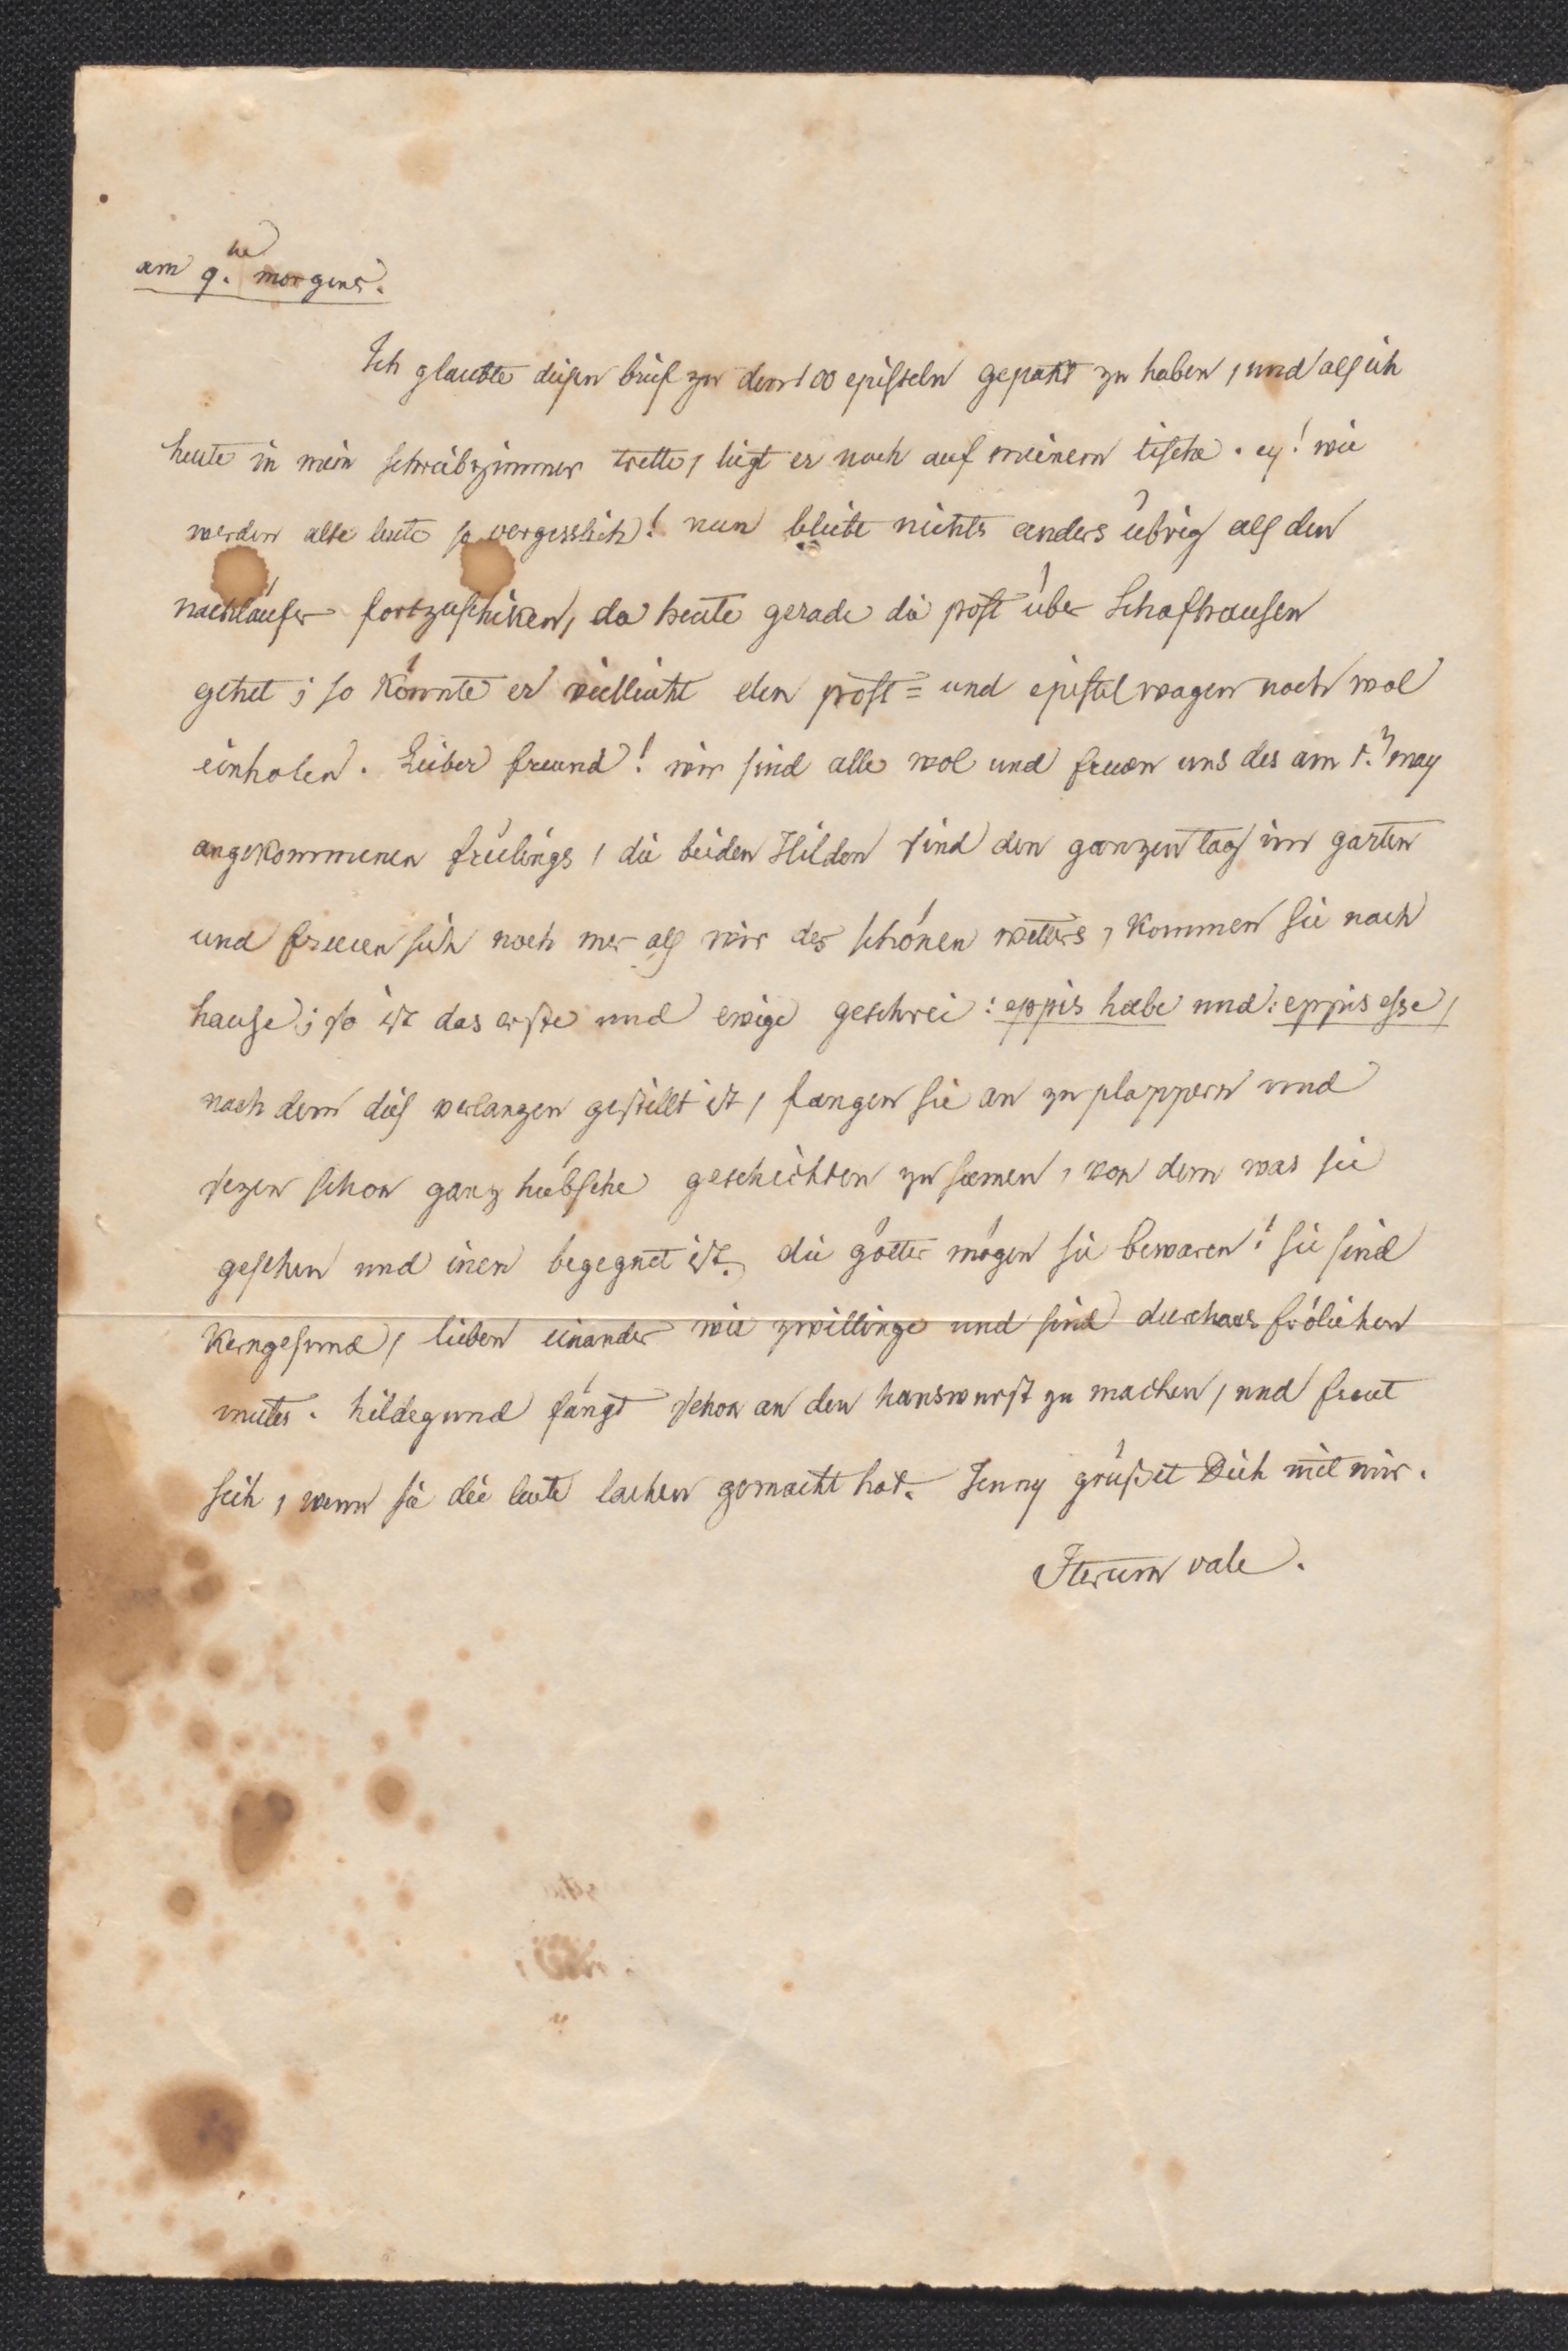 am 9.te morgens.
Ich glaubte diesen brief zu den 100 episteln gepakt zu haben, und als ich
heute in mein schreibzimmer trette, liegt er noch auf meinem tische. ey! wie
werden alte leute so vergesslich! nun bliebe nichts anders übrig als den
nachläufer fortzuschiken, da heute gerade die post über Schafhausen
gehet; so könnte er vielleicht den post= und epistelwagen noch wol
einholen. Lieber freund! wir sind alle wol und freuen uns des am 1.n may
angekommenen frülings, die beiden Hilden sind den ganzen tag im garten
und freuen sich noch mer als wir des schönen wetters, kommen sie nach
hause; so ist das erste und ewige geschrei: eppis habe und: eppis esse,
nach dem dies verlangen gestillt ist, fangen sie an zu plappern und
sezen schon ganz hübsche geschichten zusamen, von dem was sie
gesehen und inen begegnet ist. die götter mögen sie bewaren! sie sind
kerngesund, lieben einander wie zwillinge und sind durchaus frölichen
mutes. hildegund fängt schon an den hanswurst zu machen, und freut
sich, wenn sie die leute lachen gemacht hat. Jenny grüßet Dich mit mir.
Iterum vale.